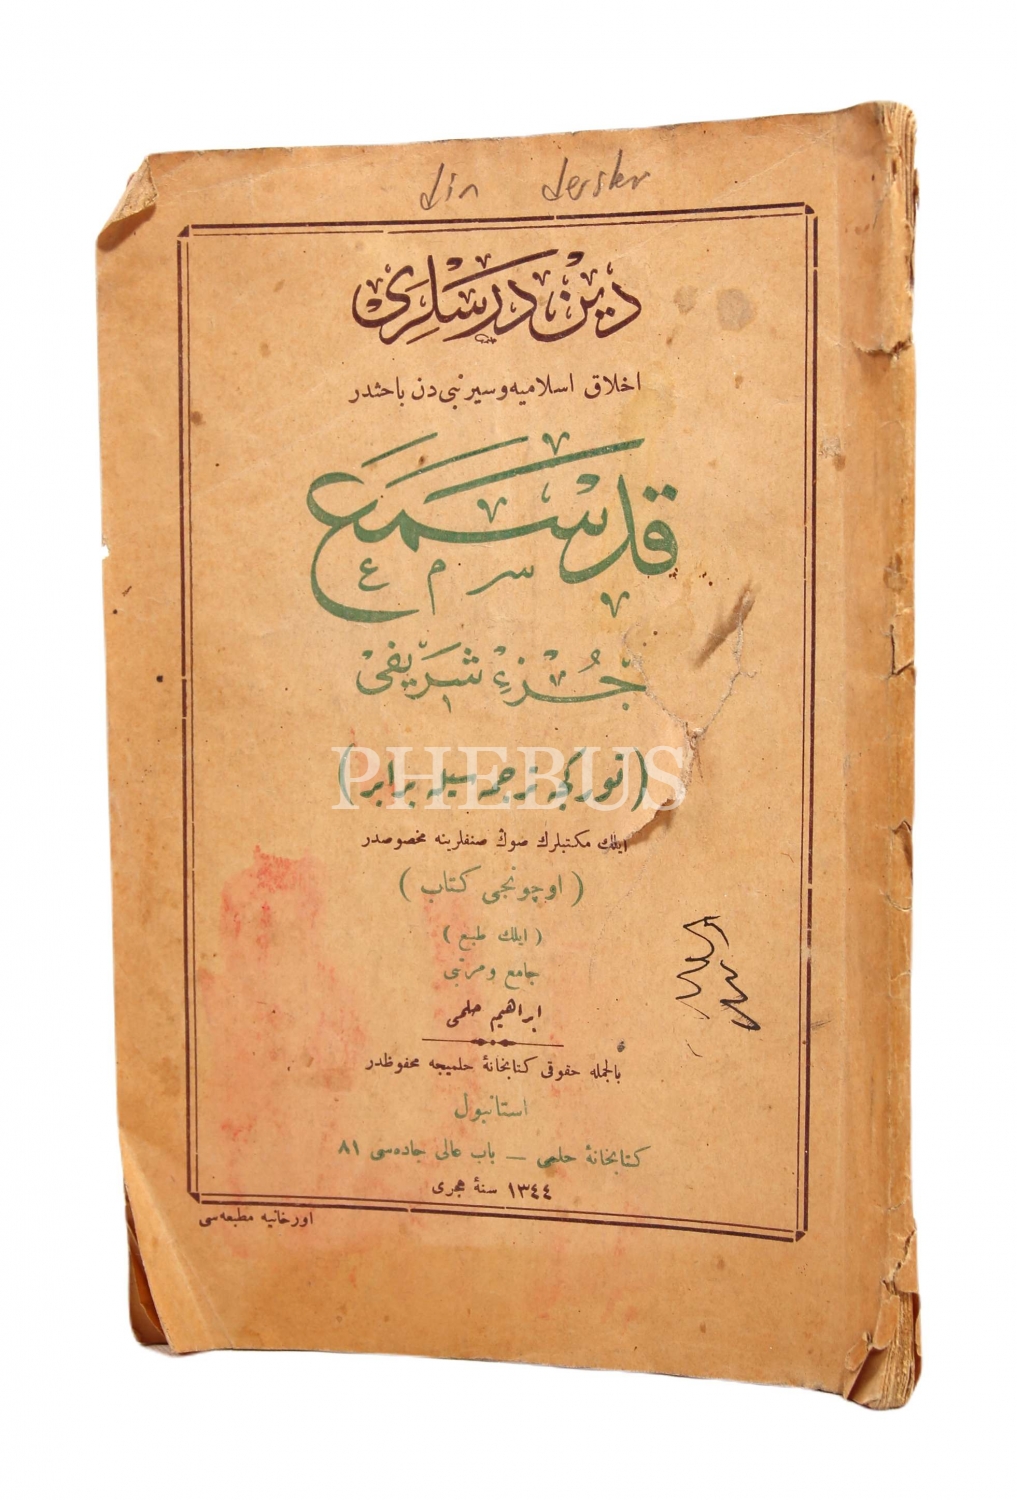 din dersler
دین درسلری
اخلاق اسلامیه و سیر نبی دن باحثدر
قد سمع
جزء شریفی
(تورکجه ترجمه سیله برابر)
PHEBUS
ایلك مکتبلرك صوڭ صنفلرینه مخصوصدر
(اوچونجی کتاب)
(ایلك طبع)
جامع و مرتبی
ابراهیم حلمی
بالجمله حقوقی کتابخانۀ حلمیجه محفوظدر
استانبول
کتابخانۀ حلمی — باب عالی جاده‌سی ٨١
١٣٤٤ سنۀ هجری
اورخانیه مطبعه‌سی